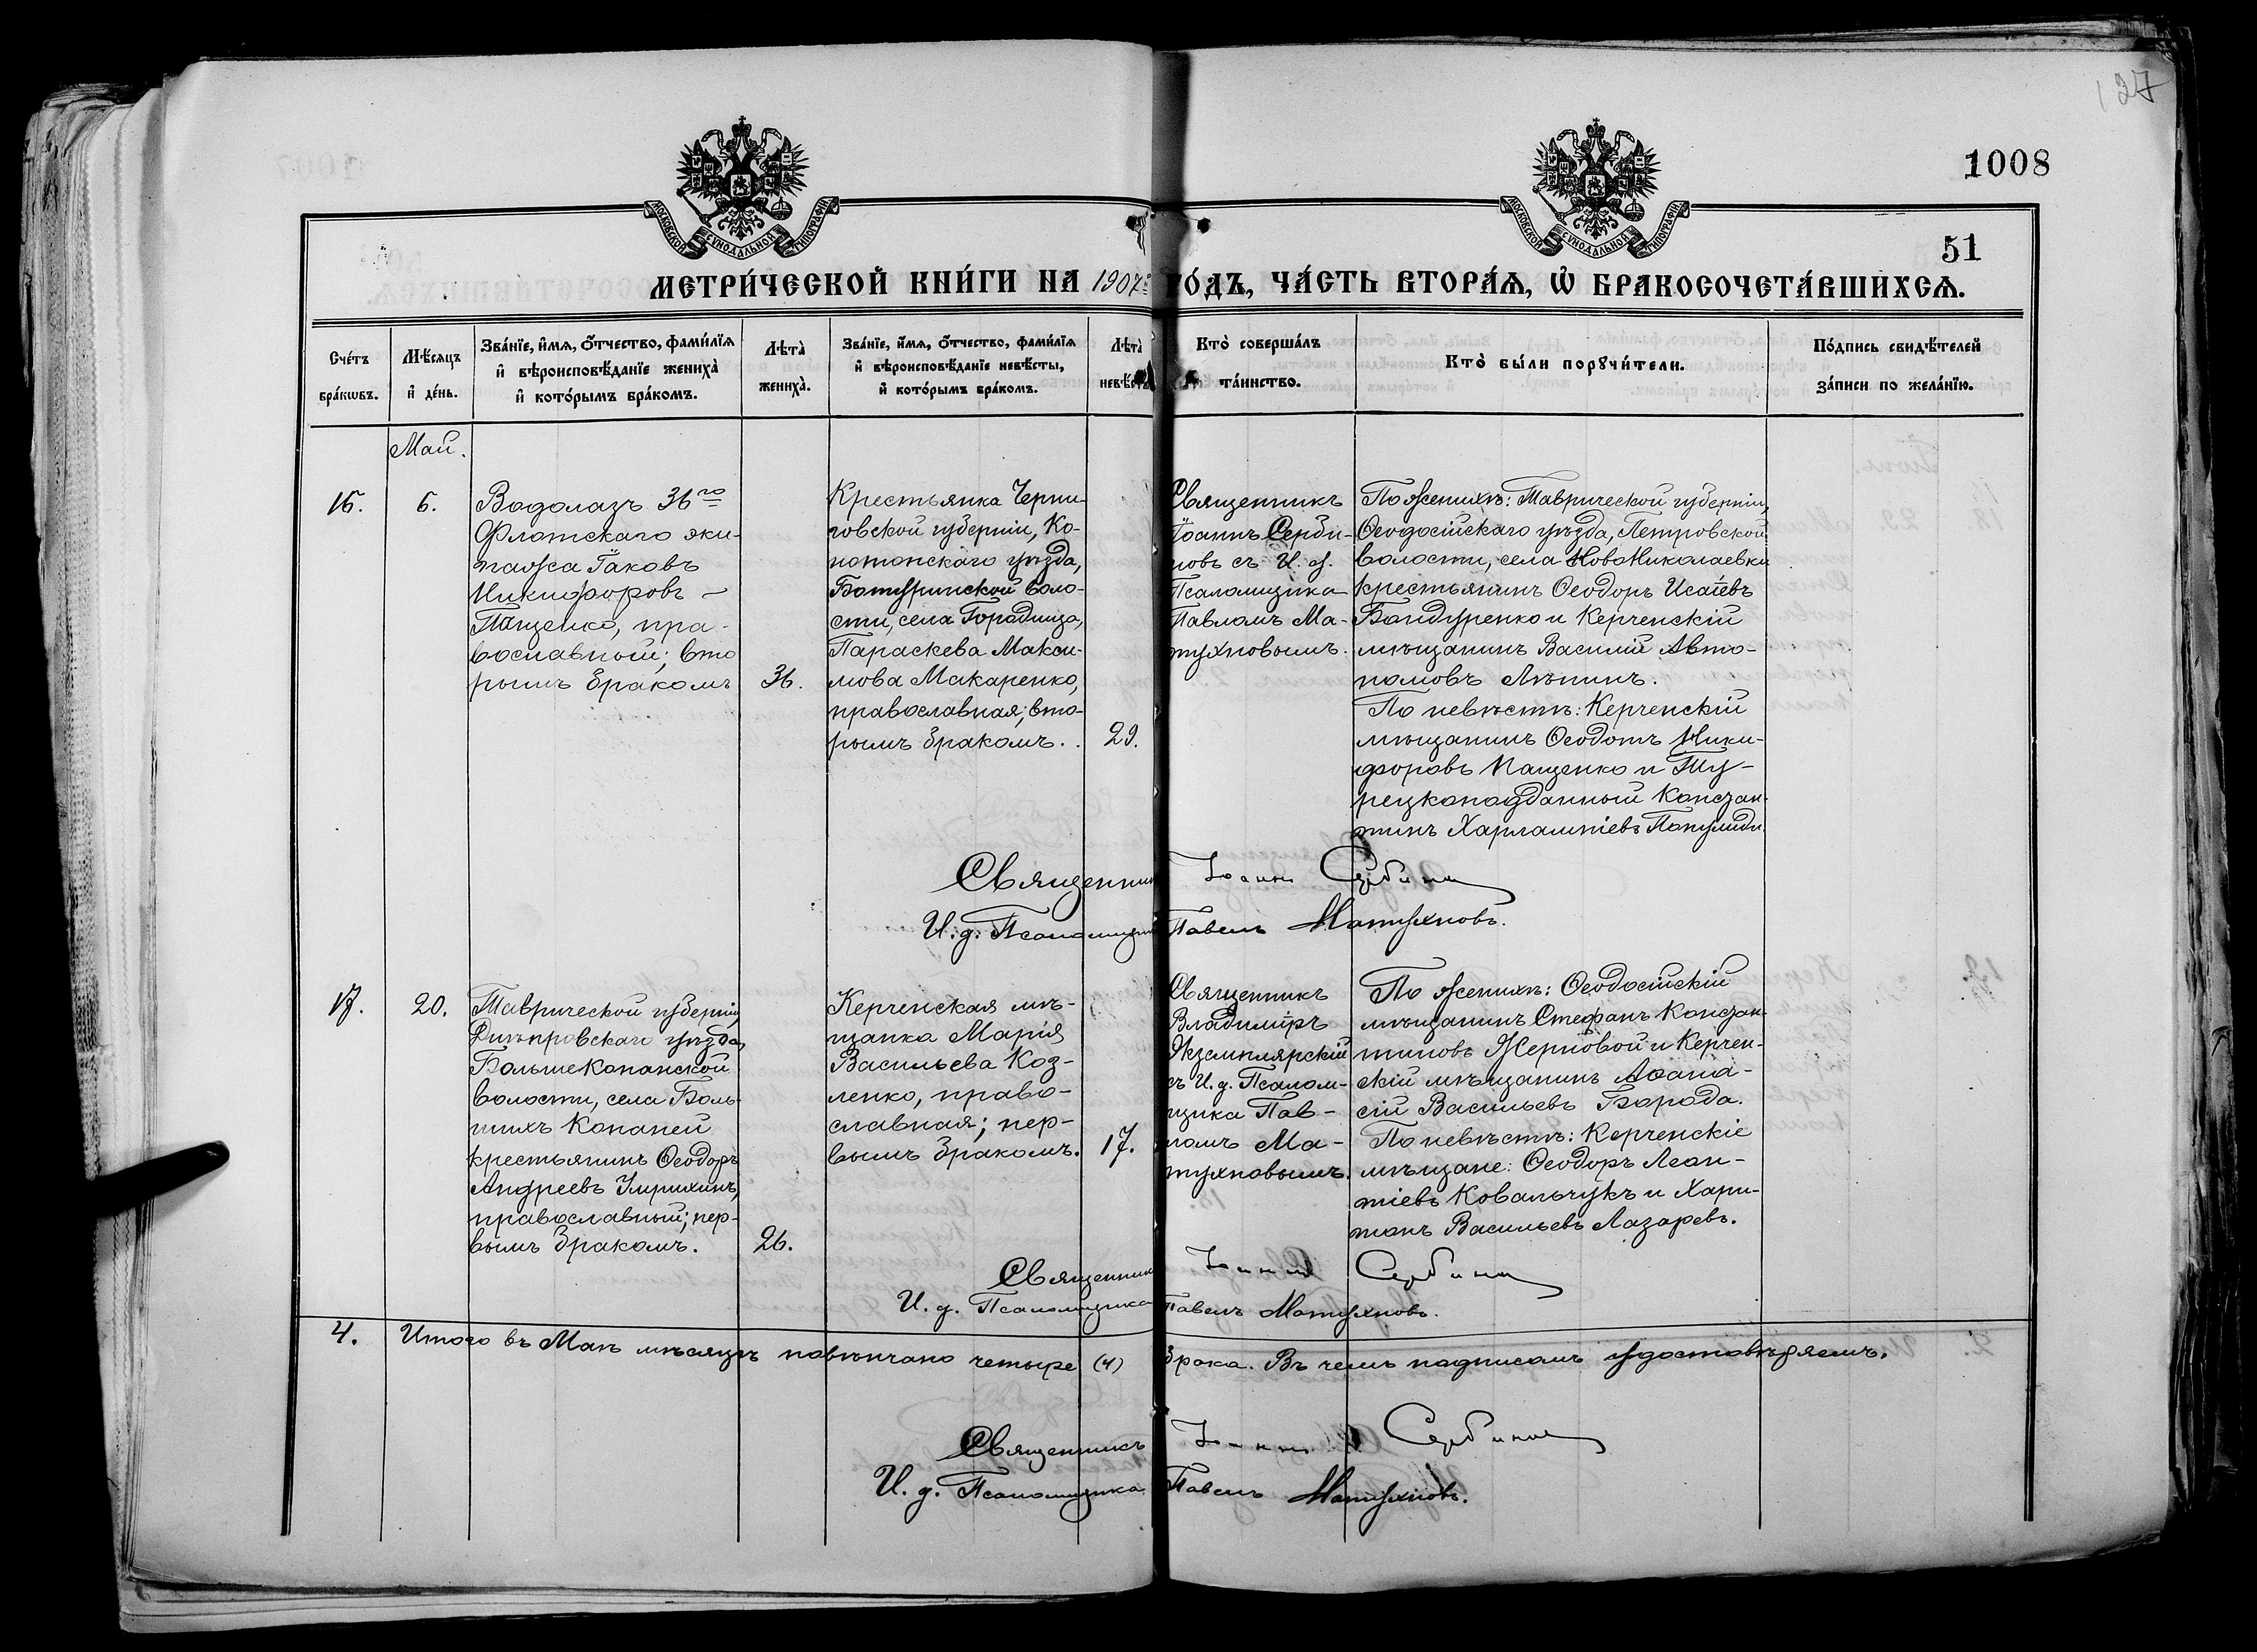 127
1008
51
МОСКОВСКОЙ СѴНОДАЛЬНОЙ ТИПОГРАФІИ
МОСКОВСКОЙ СѴНОДАЛЬНОЙ ТИПОГРАФІИ
МЕТРИ́ЧЕСКОЙ КНИ́ГИ НА 1907й ГО́ДЪ, ЧА́СТЬ ВТОРА́Ѧ, Ѽ БРАКОСОЧЕТА́ВШИХСѦ.
Сче́тъ
бра́кѡвъ.
Мѣ́сяцъ
и҆ де́нь.
Зва́нїе, и҆́мѧ, ѻ҆́тчество, фами́лїѧ
и҆ вѣроисповѣ́данїе жениха̀
и҆ кото́рымъ бра́комъ.
Лѣта̀
жениха̀.
Зва́нїе, и҆́мѧ, ѻ҆́тчество, фами́лїѧ
и҆ вѣроисповѣ́данїе невѣ́сты,
и҆ кото́рымъ бра́комъ.
Лѣта̀
невѣ́сты
Кто̀ соверша́лъ
та́инство.
Кто̀ бы́ли порꙋчи́тели.
По́дпись свидѣ́телей
за́писи по жела́нїю.
Май.
16.
6.
Водолазъ 36го
Флотскаго эки-
пажа Іаковъ
Никифоровъ
Пащенко, пра-
вославный; вто
рымъ бракомъ
36.
Крестьянка Черни-
говской губерніи, Ко-
нотопскаго уѣзда,
Батуринской воло-
сти, села Городища,
Параскева Макси-
мова Макаренко,
православная; вто-
рымъ бракомъ.
29.
Священникъ
Іоаннъ Серби-
новъ съ И. д.
Псаломщика
Павломъ Ма-
тухновымъ.
По женихѣ: Таврической губерніи,
Ѳеодосійскаго уѣзда, Петровской
волости, села НовоНиколаевки
крестьянинъ Ѳеодоръ Исаіевъ
Бондуренко и Керченскій
мѣщанинъ Василій Авто-
номовъ Лѣпинъ.
По невѣстѣ: Керченскій
мѣщанинъ Ѳеодотъ Ники-
форовъ Пащенко и Ту-
рецкоподданный Констан-
тинъ Харлампіевъ Популиди.
Священник Іоаннъ Сербиновъ
И. д. Псаломщика Павелъ Матухновъ.
17.
20.
Таврической губерніи,
Днѣпровскаго уѣзда,
БольшеКопанской
волости, села Боль-
шихъ Копаней
крестьянинъ Ѳеодоръ
Андреевъ Умрихинъ,
православный; пер-
вымъ бракомъ.
26.
Керченская мѣ-
щанка Марія
Васильева Коз-
ленко, право-
славная; пер-
вымъ бракомъ.
17.
Священникъ
Владиміръ
Экземплярскій
съ И. д. Псалом-
щика Пав-
ломъ Ма-
тухновымъ.
По женихѣ: Ѳеодосійскій
мѣщанинъ Стефанъ Констан-
тиновъ Жерновой и Керчен-
скій мѣщанинъ Аѳана-
сій Васильевъ Борода.
По невѣстѣ: Керченскіе
мѣщане: Ѳеодоръ Леон-
тіевъ Ковальчукъ и Хари-
тонъ Васильевъ Лазаревъ.
Священник Іоаннъ Сербиновъ
И. д. Псаломщика Павелъ Матухновъ.
4. Итого въ Маѣ мѣсяцѣ повѣнчано четыре (4) брака. Въ чемъ подписомъ удостовѣряемъ.
Священникъ Іоаннъ Сербиновъ
И. д. Псаломщика Павелъ Матухновъ.